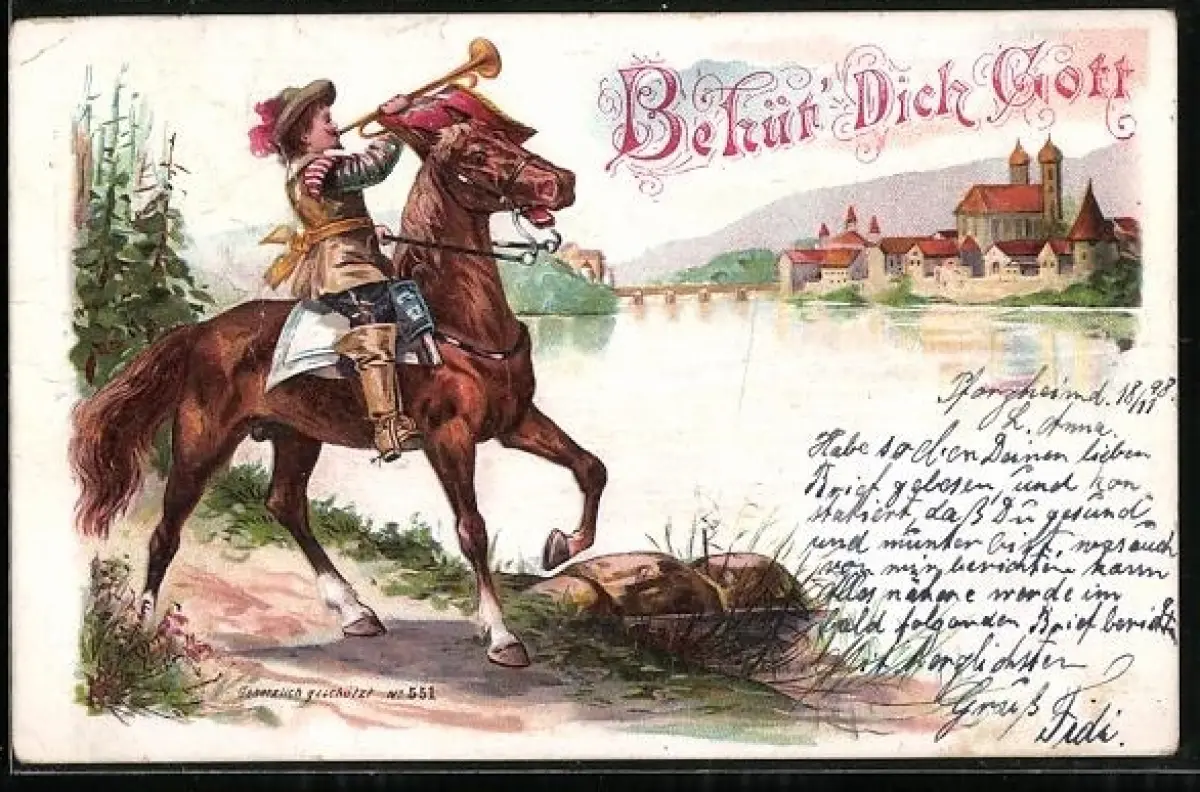 Behüt' Dich Gott
Pforzheim d. 18/11 98.
L. Anna.
Habe soeben Deinen lieben
Brief gelesen, und kon
statiert, daß Du gesund
und munter bist, was auch
von mir berichten kann
Alles nähere werde im
bald folgenden Brief berichten
Mit herzlichsten
Gruß
Fidi.
Gesetzlich geschützt No 551